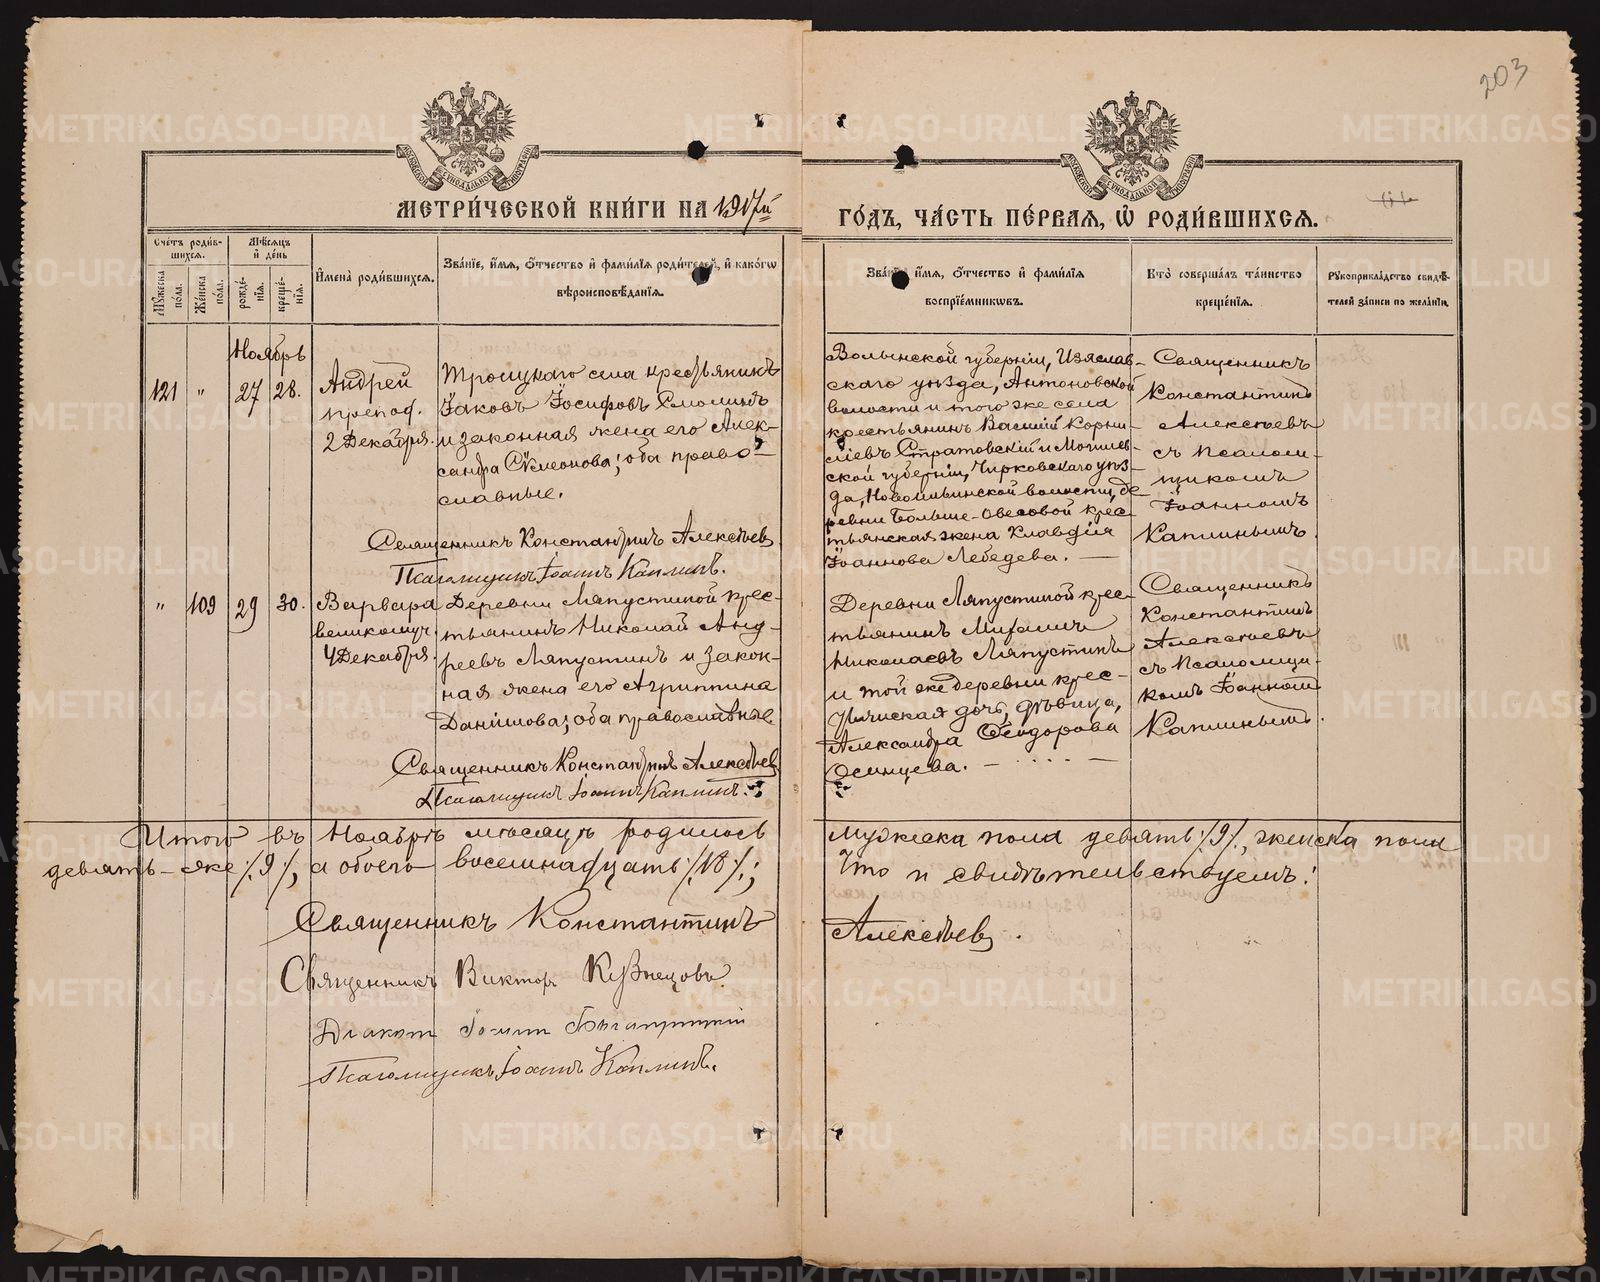 203
МЕТРИ́ЧЕСКОЙ КНИ́ГИ НА 1917й
ГО́ДЪ, ЧА́СТЬ ПЕ́РВАЯ, Ѡ҆ РОДИ́ВШИХСЯ.
Сче́тъ роди́в-
шихся.
Мѣ́сяцъ
и҆ де́нь
Мꙋ́жеска
по́ла.
Же́нска
по́ла.
рожде́-
нія.
креще́-
нія.
И҆мена̀ роди́вшихся.
Зва́ніе, и҆́мя, ѻ҆́тчество и҆ фами́лія роди́телей, и҆ како́гѡ
вѣроисповѣ́данія.
Зва́ніе, и҆́мя, ѻ҆́тчество и҆ фами́лія
воспріе́мниковъ.
Кто̀ соверша́лъ та́инство
креще́нія.
Рꙋкоприкла́дство свидѣ́-
телей за́писи по жела́нію.
Ноябрь
121 " 27 28.
Андрей
препод.
2 Декабря.
Троицкаго села крестьянинъ
Іаковъ Іосифовъ Смолинъ
и законная жена его Алек-
сандра Сѵмеонова; оба право-
славные.
Священникъ Константинъ Алексѣевъ
Псаломщикъ Іоаннъ Каплинъ.
Волынской губерніи, Изяслав-
скаго уѣзда, Антоновской
волости и того же села
крестьянинъ Василій Корни-
ліевъ Стратовскій и Могилев-
ской губерніи, Чирковскаго уѣз-
да, Новоильинской волости, де-
ревни Больше-Овсовой крес-
тьянская жена Клавдія
Іоаннова Лебедева. —
Священникъ
Константинъ
Алексѣевъ
съ псалом-
щикомъ
Іоанномъ
Каплинымъ.
" 109 29 30.
Варвара
великомуч.
4 Декабря.
Деревни Ляпустиной крес-
тьянинъ Николай Анд-
реевъ Ляпустинъ и закон-
ная жена его Агриппина
Даніилова; оба православные
Священникъ Константинъ Алексѣевъ
Псаломщикъ Іоаннъ Каплинъ.
Деревни Ляпустиной крес-
тьянинъ Михаилъ
Николаевъ Ляпустинъ
и той же деревни крес-
тьянская дочь, дѣвица,
Александра Ѳеодорова
Осинцева. —
Священникъ
Константинъ
Алексѣевъ
съ псаломщи-
комъ Іоанномъ
Каплинымъ.
Итого въ Ноябрѣ мѣсяцѣ родилось мужеска пола девять /9/, женска пола
девять-же /9/, а обоего восемнадцать /18/; Что и свидѣтельствуемъ:
Священникъ Константинъ Алексѣевъ.
Священникъ Викторъ Кузнецовъ.
Діаконъ Іоаннъ
Псаломщикъ Іоаннъ Каплинъ.
METRIKI.GASO-URAL.RU